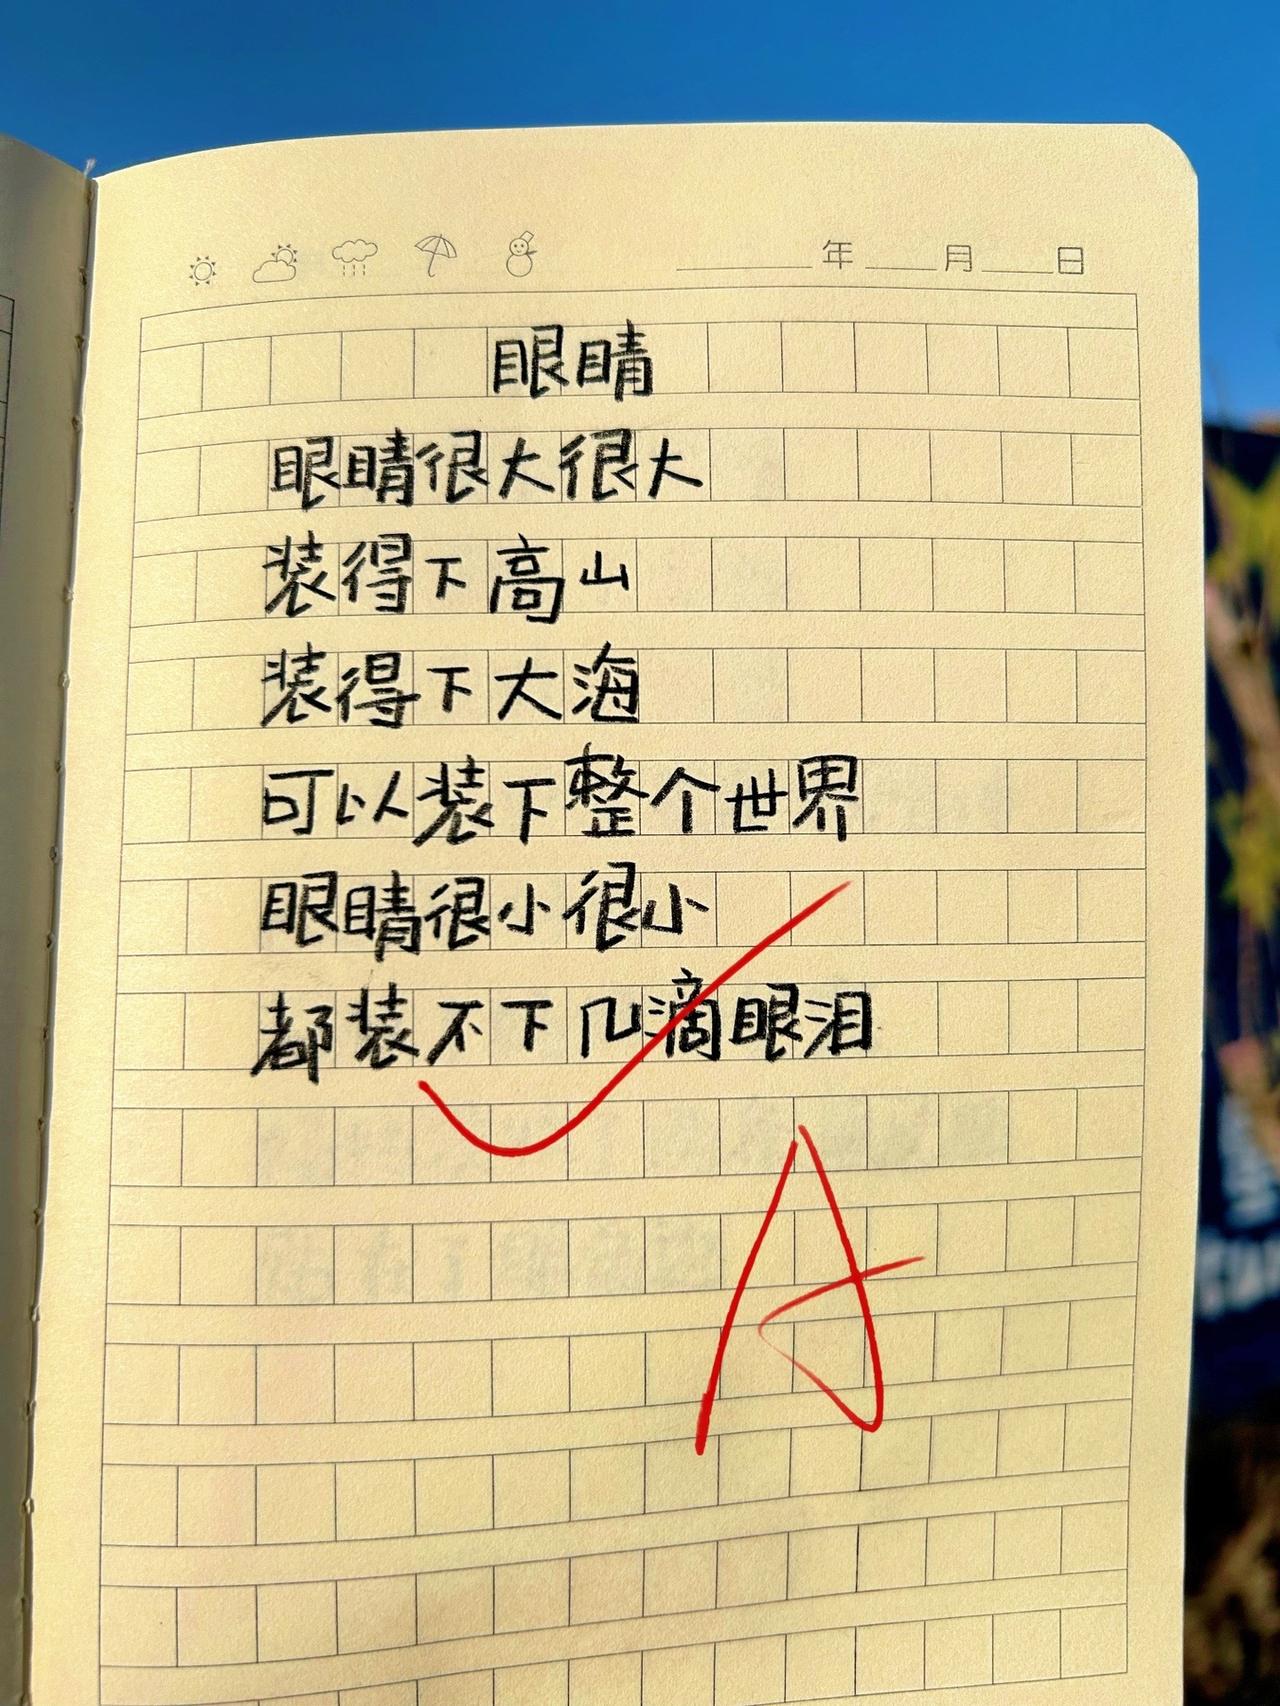 年 月 日
眼睛
眼睛很大很大
装得下高山
装得下大海
可以装下整个世界
眼睛很小很小
都装不下几滴眼泪
A